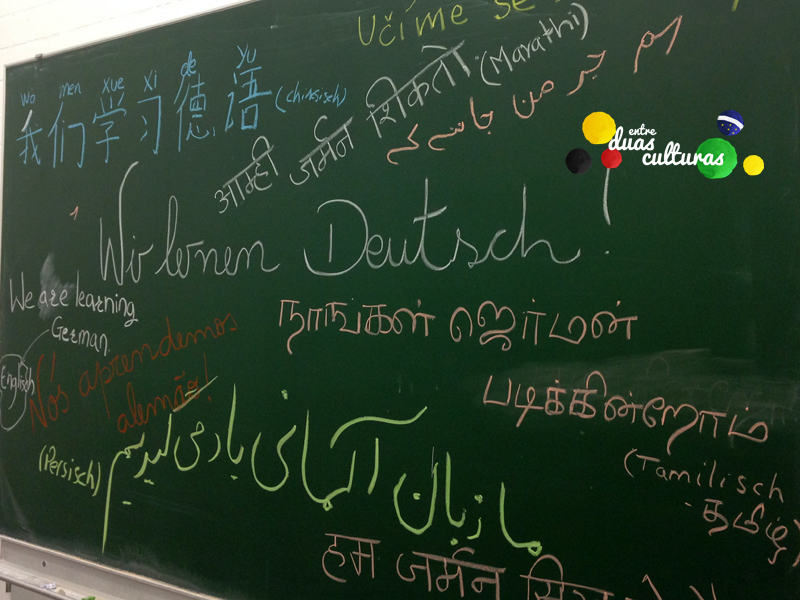 Učíme se
wo men xue xi de yu
我们学习德语
आम्ही जर्मन शिकतो (Marathi)
ہم جر من
entre
duas
culturas
Wir lernen Deutsch!
We are learning
German
Englisch
Nós aprendemos
alemão!
நாங்கள் ஜெர்மன்
படிக்கின்றோம்
(Tamilisch
- தமிழ்)
ما زبان آلمانی یاد می گیریم
(Persisch)
हम जर्मन